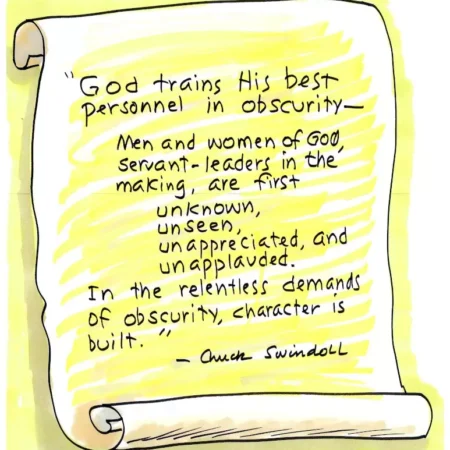 "God trains His best
personnel in obscurity—
Men and women of God,
servant-leaders in the
making, are first
unknown,
unseen,
unappreciated, and
unapplauded.
In the relentless demands
of obscurity, character is
built."
— Chuck Swindoll